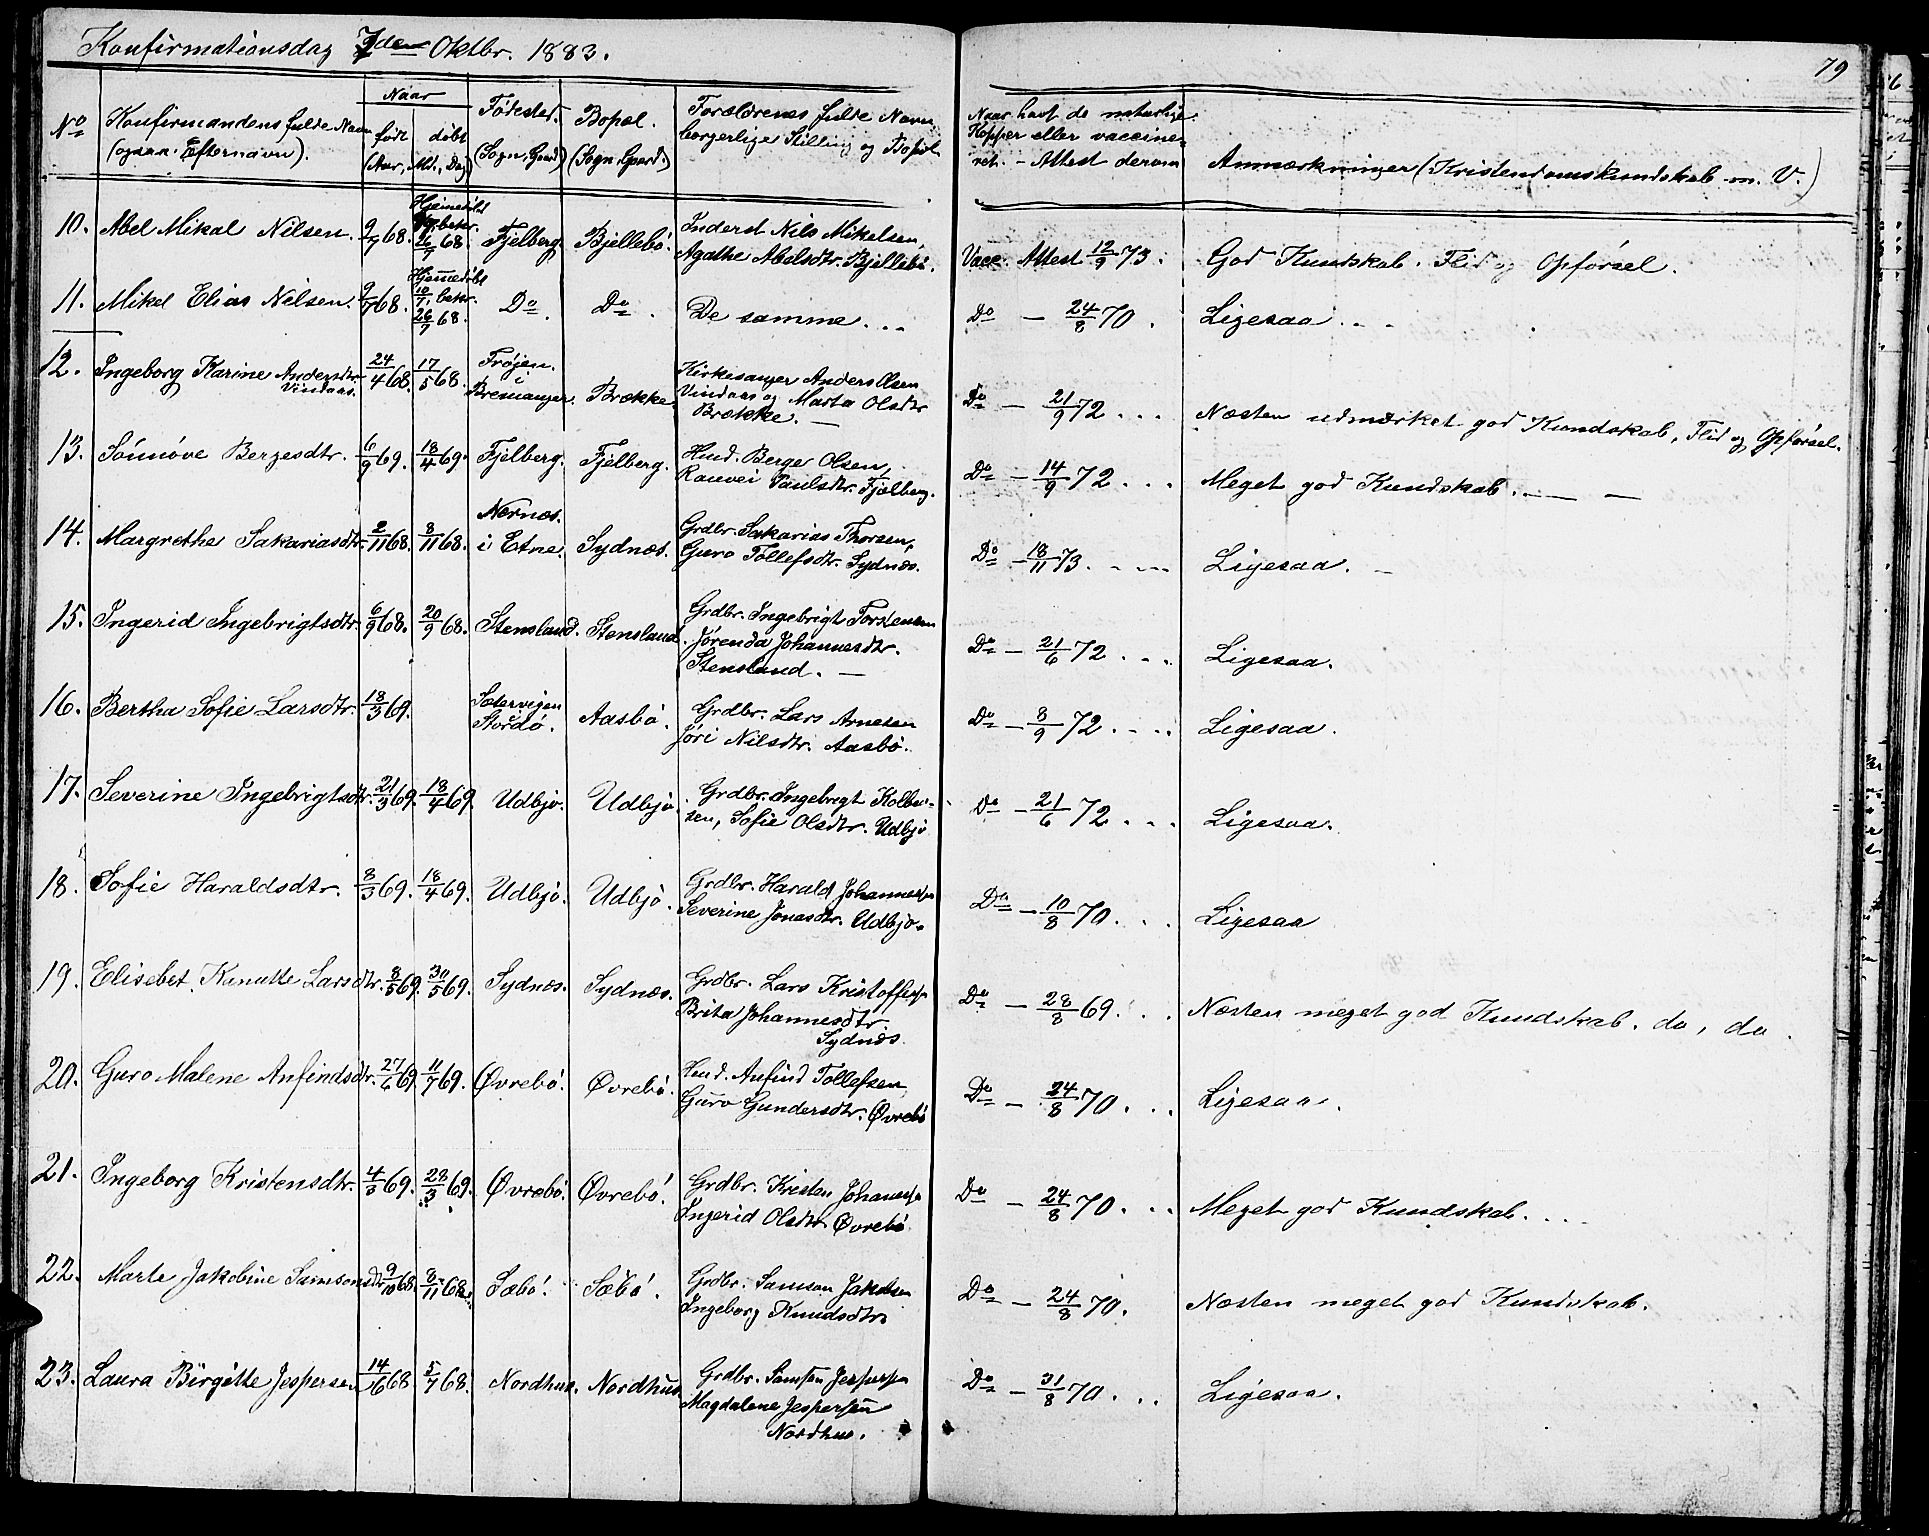 Konfirmationsdag 7den Oktbr. 1883.
79
No
Konfirmandens fulde Navn
(ogsaa Efternavn).
Naar
født
døbt
(Aar, Md., Dag)
Fødested.
(Sogn, Gaard)
Bopæl.
(Sogn, Gaard.)
Forældrenes fulde Navn
borgerlige Stilling og Bopæl
Naar havt de naturlige
Kopper eller vaccine-
ret. - Attest derom
Anmærkninger (Kristendomskundskab m. V.)
10. Abel Mikal Nilsen. 9/7 68. Hjemmedøbt bekr. 26/7 68. Fjelberg Bjellebö. Inderst Nils Mikelsen,
Agathe Abelsdtr. Bjellebö. Vacc. Attest 12/9 73. God Kundskab. Flid og Opförsel.
11. Mikel Elias Nilsen. 9/7 68. Hjemmedöbt
10/7, bekr.
26/7 68. Do. Do. De samme... Do - 24/8 70. Ligesaa...
12. Ingeborg Karine Andersdtr.
Vindaas. 24/4 68. 17/5 68. Fröjen.
i
Bremanger. Brække. Kirkesanger Anders Olsen
Vindaas og Marta Olsdtr
Brække. — Do - 21/9 72... Næsten udmærket god Kundskab, Flid og Opförsel.
13. Sönnöve Bergesdtr. 6/9 69. 18/4 69. Fjelberg. Fjelberg. Hmd. Berge Olsen,
Ranvei Paulsdtr. Fjelberg. Do - 14/9 72... Meget god Kundskab. — —
14. Margrethe Sakariasdtr. 2/11 68. 8/11 68. Nernæs.
i Etne. Sydnæs. Grdbr. Sakarias Thorsen,
Guro Tollefsdtr. Sydnæs. Do - 18/11 73. Ligesaa. -
15. Ingerid Ingebrigtsdtr. 6/9 68. 20/9 68. Stensland. Stensland. Grdbr. Ingebrigt Torstensen
Jörenda Johannesdtr.
Stensland. — Do - 21/6 72... Ligesaa.
16. Bertha Sofie Larsdtr. 18/3 69. Sætervigen
Stordö. Aasbö. Grdbr. Lars Arnesen
Jöri Nilsdtr. Aasbö. Do - 8/9 72.... Ligesaa.
17. Severine Ingebrigtsdtr. 21/3 69. 18/4 69 Udbjo. Udbjo. Grdbr. Ingebrigt Kolben-
sen, Sofie Olsdtr. Udbjo Do - 21/6 72... Ligesaa.
18. Sofie Haraldsdtr. 8/3 69. 18/4 69. Udbjö. Udbjö. Grdbr. Harald Johannessen
Severine Jonasdtr. Udbjo. Do - 10/8 70... Ligesaa
19. Elisebet Kanutte Larsdtr. 8/5 69. 30/5 69. Sydnæs. Sydnæs. Grdbr. Lars Kristoffersen
Brita Johannesdtr.
Sydnæs. Do - 28/8 69... Næsten meget god Kundskab. do, do.
20. Guro Malene Anfindsdtr. 27/6 69 11/7 69. Øvrebö. Øvrebö. Hmd. Anfind Tollefsen
Guro Gundersdtr. Øvrebö Do - 24/8 70... Ligesaa.
21. Ingeborg Kristensdtr. 4/3 69. 28/3 69. Øvrebö. Øvrebö. Grdbr. Kristen Johannessen
Ingerid Olsdtr Øvrebö. Do - 24/8 70... Meget god Kundskab....
22. Marte Jakobine Samsonsdtr 9/10 68. 8/11 68. Sæbö. Sæbö. Grdbr. Samson Jakobsen
Ingeborg Knudsdtr. Do - 24/8 70. Næsten meget god Kundskab.
23. Laura Birgitte Jespersen 14/6 68 5/7 68. Nordhus. Nordhus. Grdbr. Samson Jespersen
Magdalene Jespersen
Nordhus. Do - 31/8 70... Ligesaa.